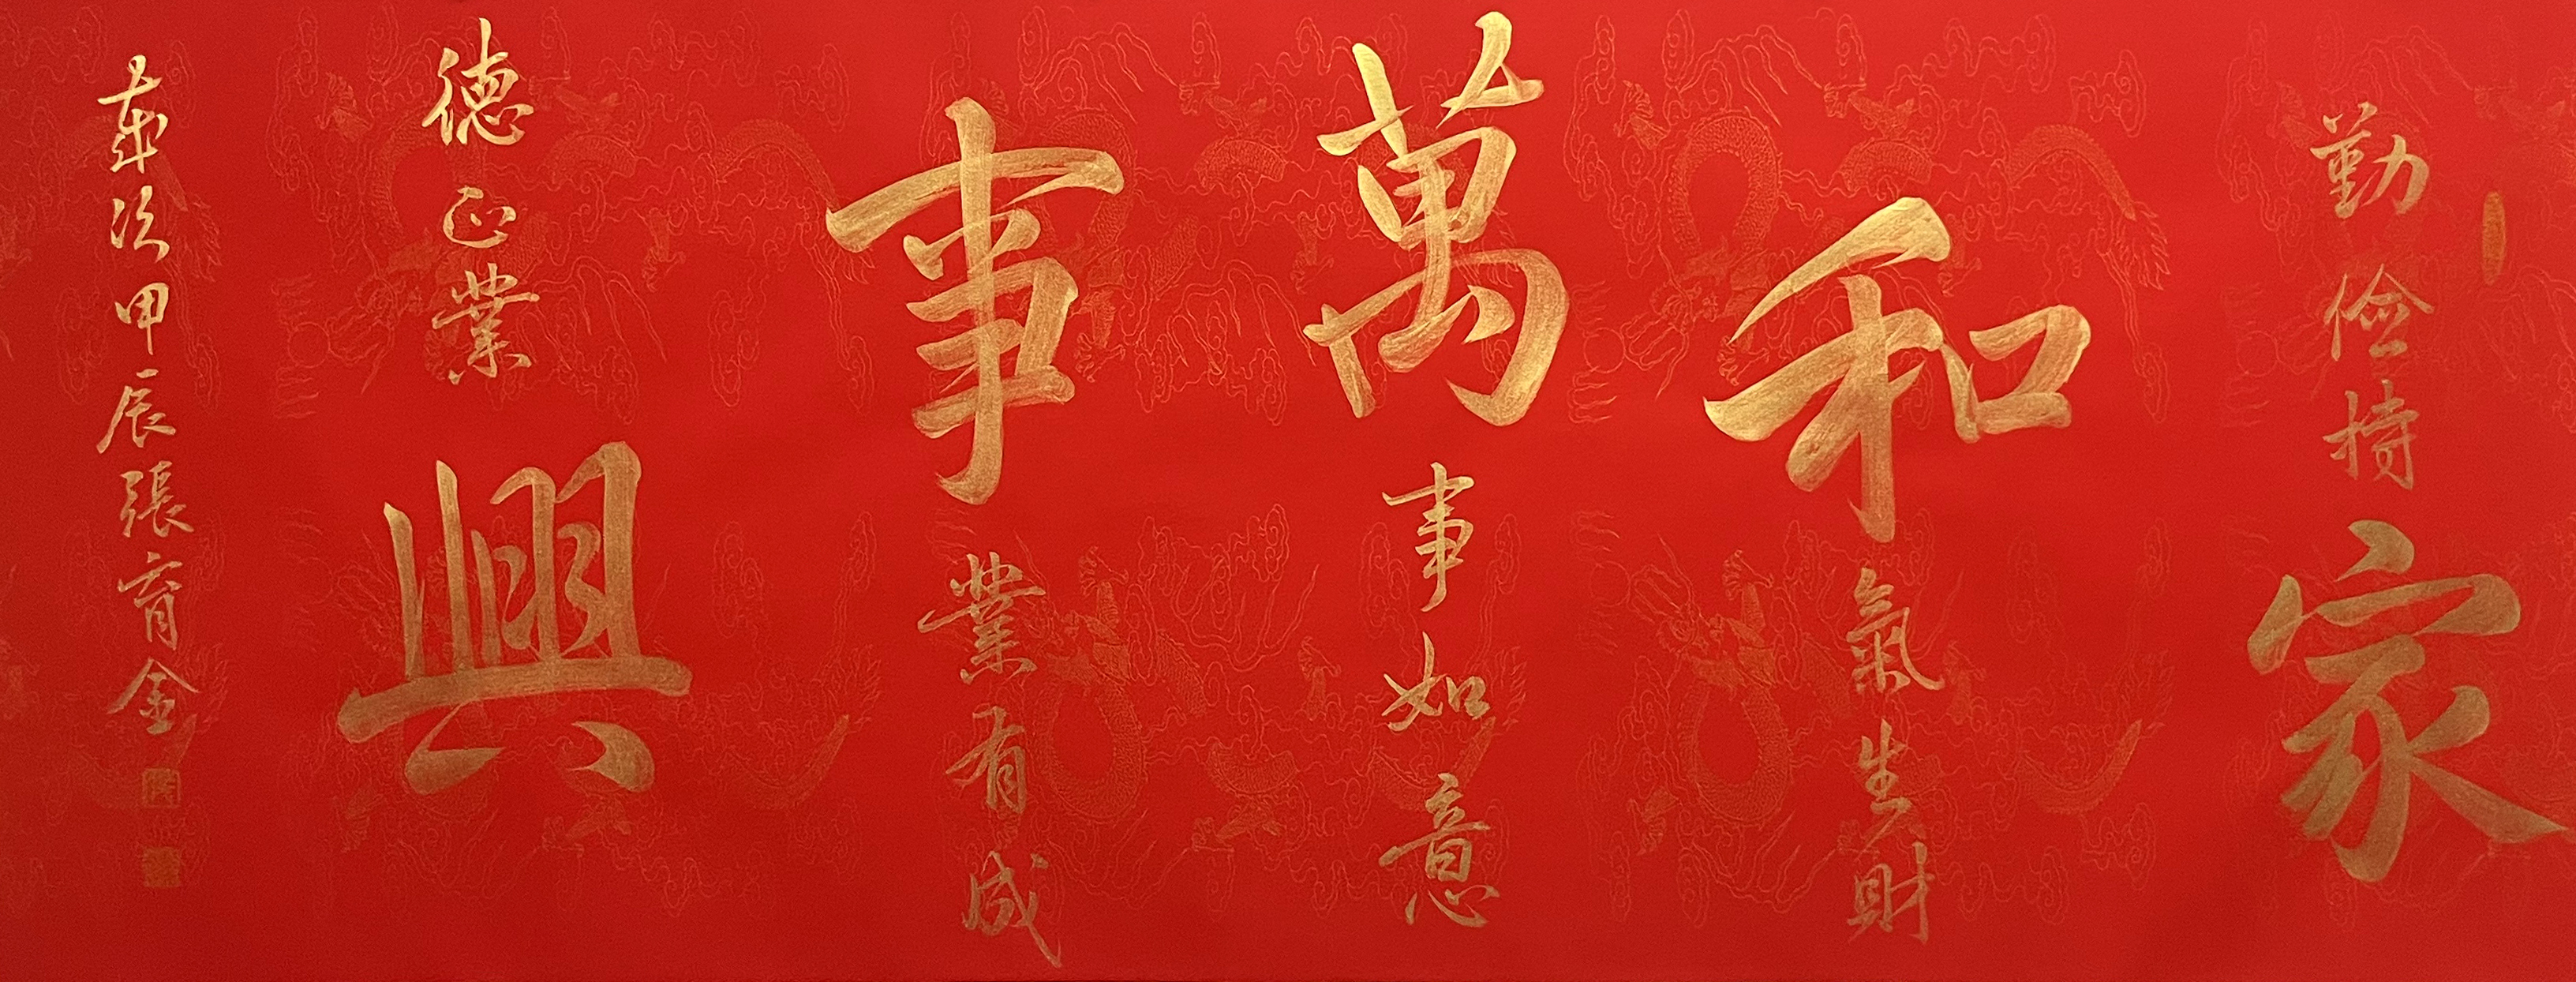 勤儉持家
和氣生財
萬事如意
事業有成
德正業興
歲次甲辰張育金